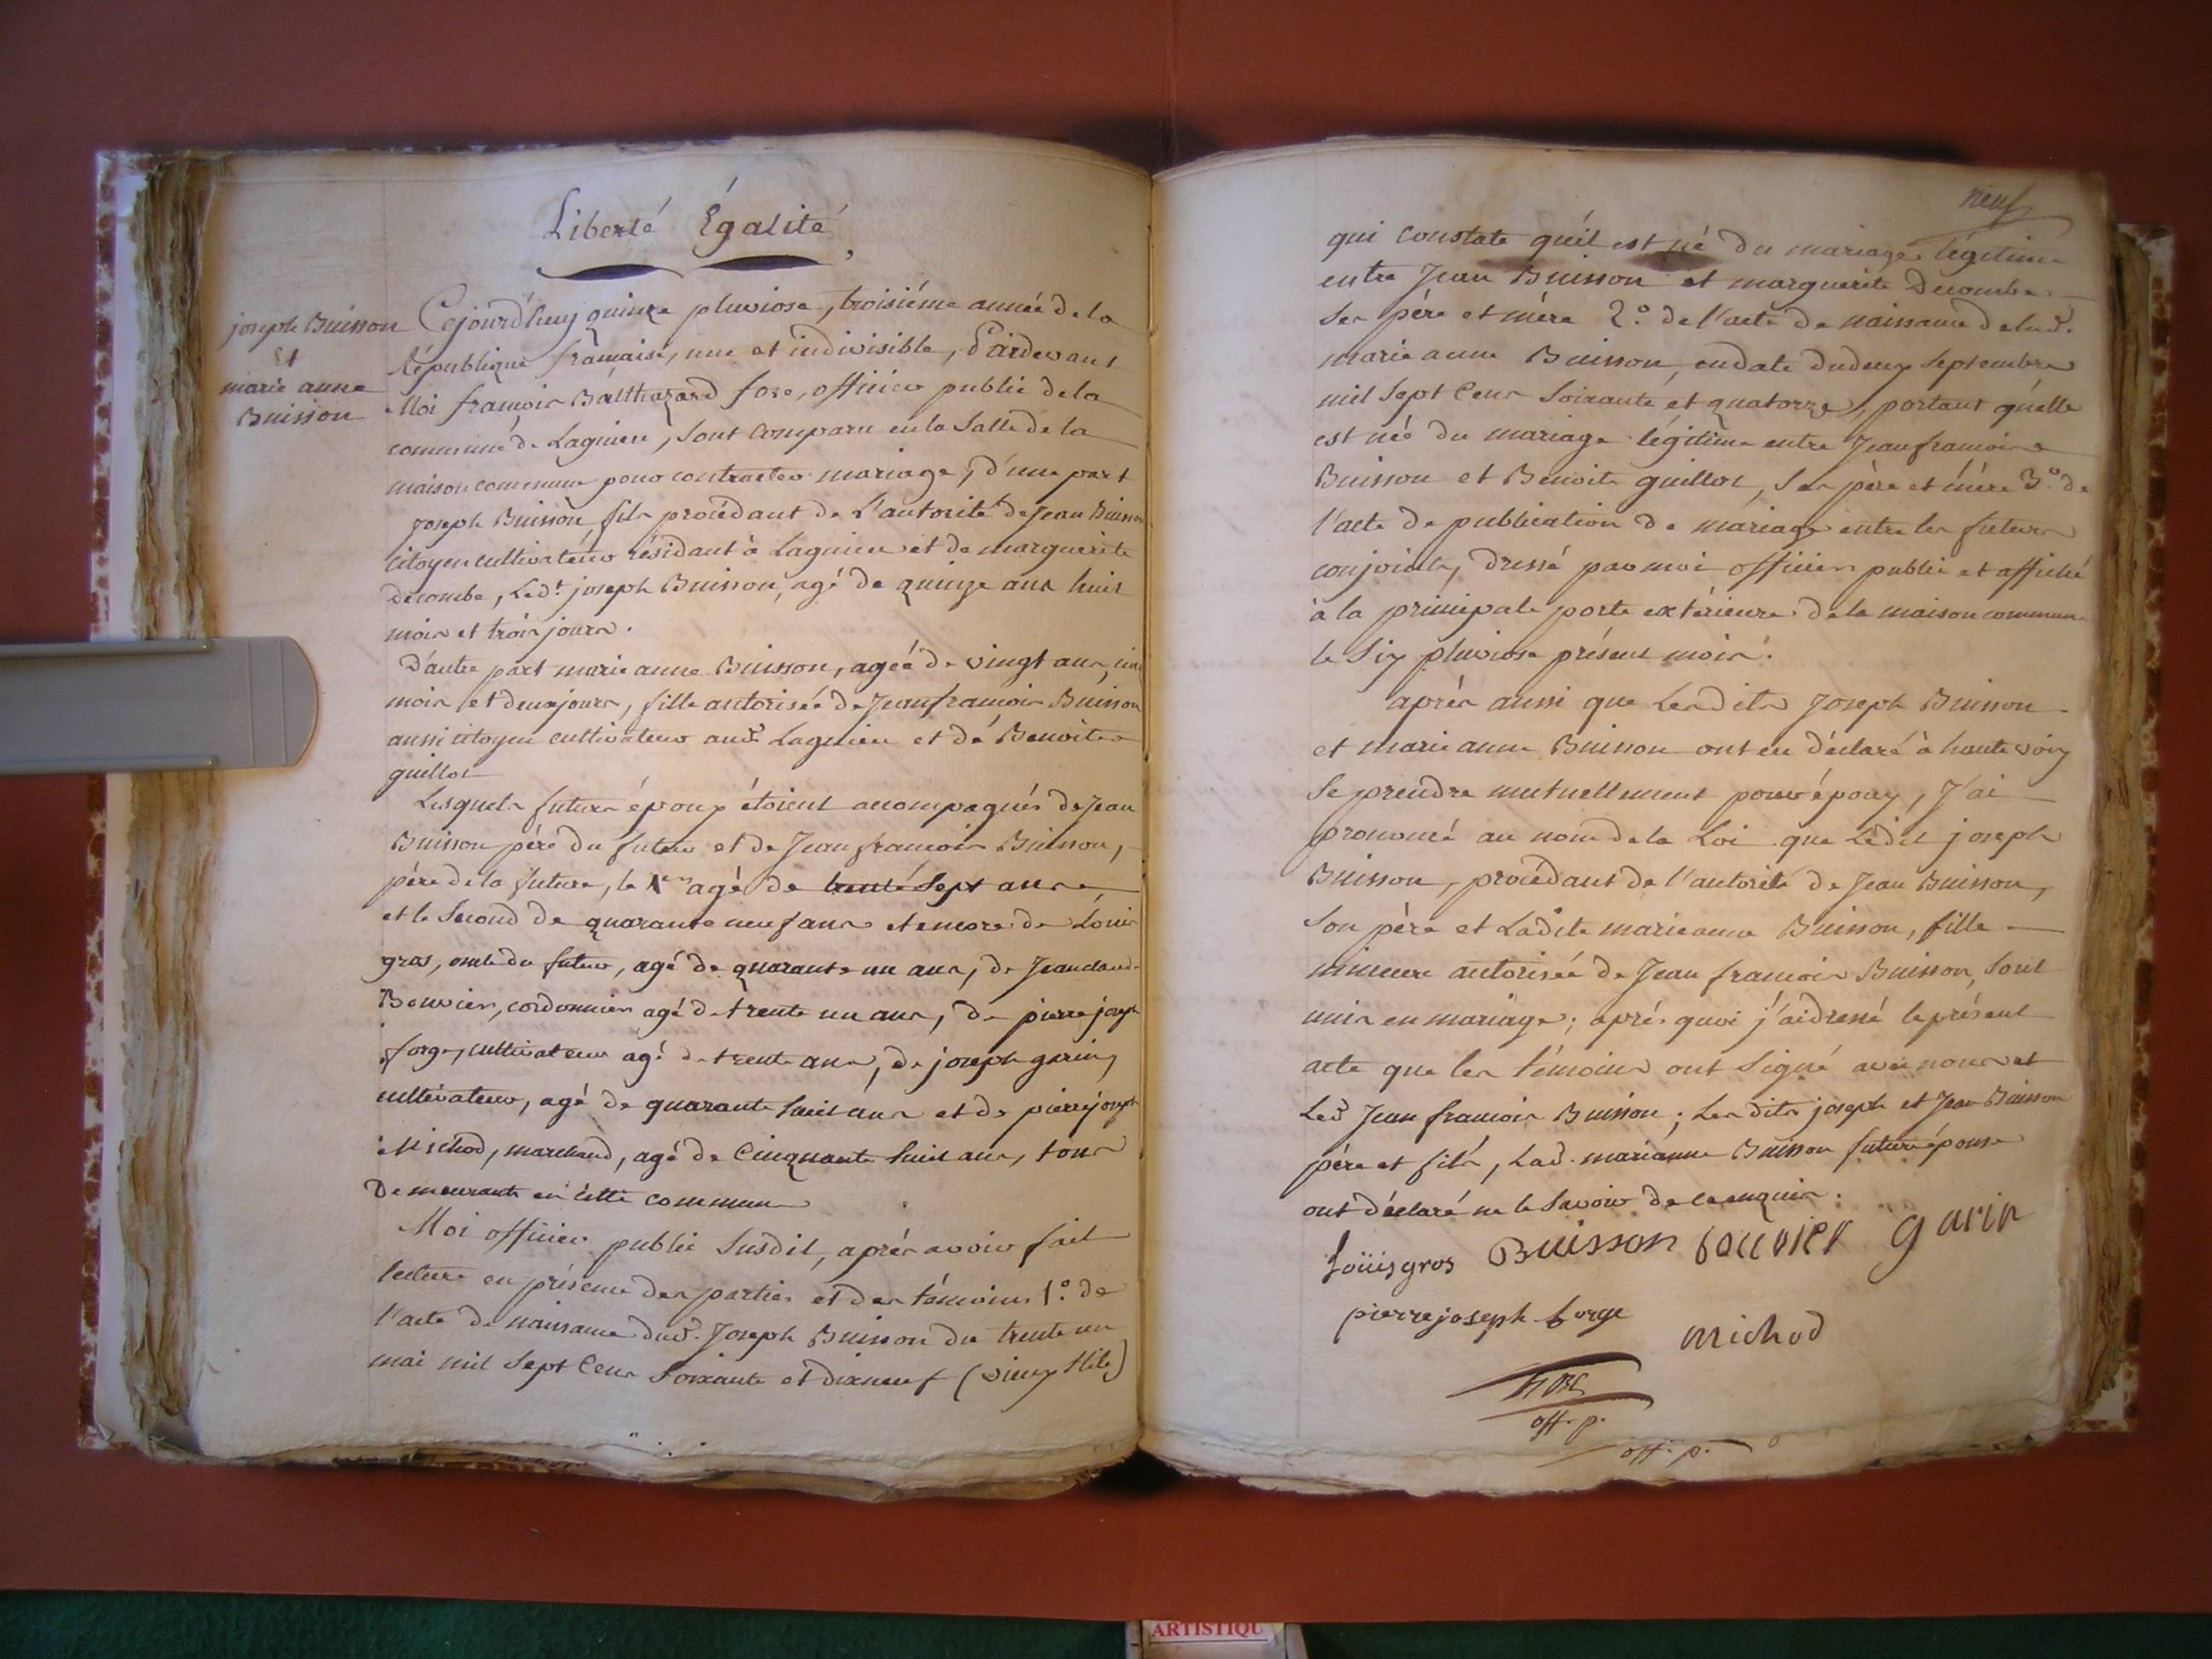 Liberté Égalité
joseph Buisson
Et
marie anne
Buisson
Cejourd'huy quinze pluviose, troisiéme année de la
République française, une et indivisible, Pardevant
Moi françois Balthazard fore, officier public de la
commune de Lagnieu, sont comparu en la Salle de la
maison commune pour contracter mariage, d'une part
joseph Buisson fils procédant de L'autorité de Jean Buisson
citoyen cultivateur résidant à Lagnieu et de marguerite
decombe, Led.t joseph Buisson, agé de quinze ans huit
mois et trois jours.
D'autre part marie anne Buisson, agéé de vingt ans,
mois et deux jours, fille autorisée de Jean françois Buisson
aussi citoyen cultivateur aud. Lagnieu et de Benoite
guillot
Lesquels futurs époux étoient accompagnés de Jean
Buisson pére du futur et de Jean françois Buisson,
pére de la future, le 1er agé de trente sept ans
et le Second de quarante neuf ans et encore de Louis
gros, oncle du futur, agé de quarante un ans, de Jean claude
Bouvier, cordonnier agé de trente un ans, de pierre joseph
forge, cultivateur agé de trente ans, de joseph garin,
cultivateur, agé de quarante huit ans et de pierre joseph
Michod, marchand, agé de Cinquante huit ans, tous
Demeurants en cette commune
Moi officier public Susdit, après avoir fait
lecture en présence des parties et des témoins 1.° de
l'acte de naissance dud. Joseph Buisson du trente un
mai mil Sept Cens Soixante et dixneuf (vieux Stile)
neuf
qui constate qu'il est né du mariage légitime
entre Jean Buisson et marguerite Decombe
Ses pére et mére 2.° de l'acte de naissance de lad.
marie anne Buisson, en date du deux Septembre
mil Sept Cens Soixante et quatorze, portant qu'elle
est née du mariage légitime entre Jean françois
Buisson et Benoite guillot, Ses pére et mére 3.° de
l'acte de publication de mariage entre les futurs
conjoints, dressé par moi officier public et affiché
à la principale porte extérieure de la maison commune
le Six pluviose présent mois.
après aussi que Lesdits Joseph Buisson
et marie anne Buisson ont eu déclaré à haute voix
Se prendre mutuellement pour époux, J'ai
prononcé au nom de la Loi que Ledit joseph
Buisson, procédant de l'autorité de Jean Buisson,
Son père et Ladite marie anne Buisson, fille
mineure autorisée de Jean françois Buisson, Sont
unis en mariage; après quoi j'ai dressé le présent
acte que les témoins ont Signé avec nous et
Led. Jean françois Buisson; Lesdits joseph et Jean Buisson
pére et fils, Lad. marianne Buisson future épouse
ont déclaré ne le Savoir de ce enquis.
Loüis gros Buisson bouvier garin
pierre joseph forge
michod
fore
off. p.
off. p.
ARTISTIQU